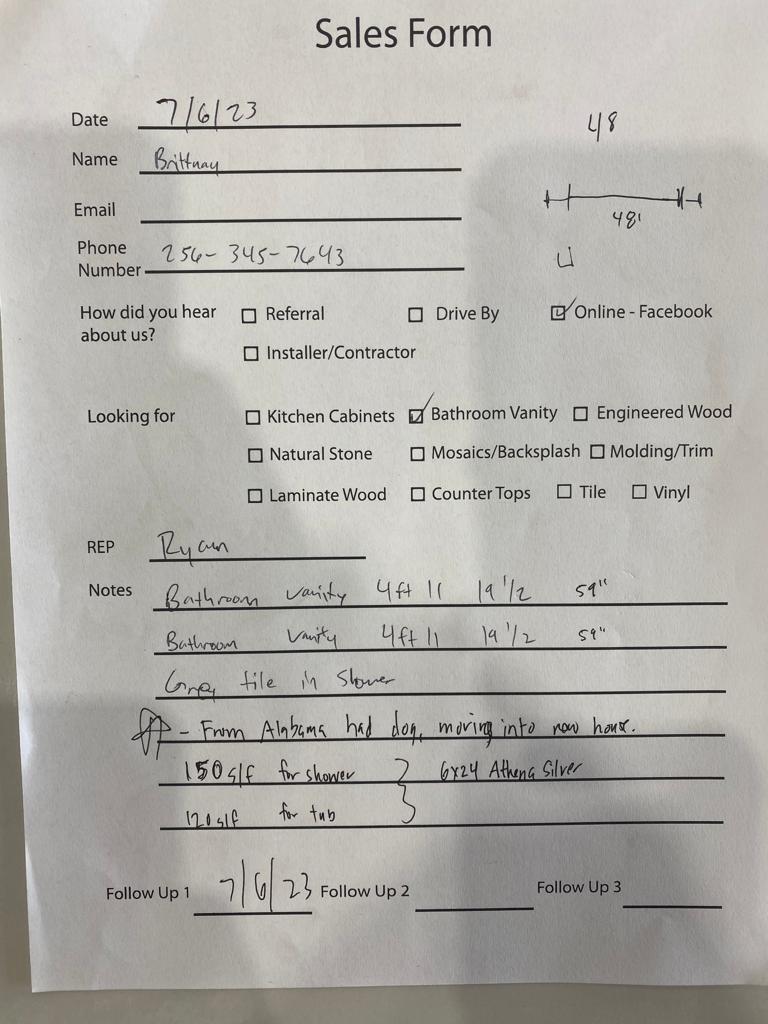 Sales Form
Date 7/6/23
48
Name Brittnay
Email
48'
Phone
Number 256-345-7643
How did you hear
about us?
☐ Referral ☐ Drive By ☑ Online - Facebook
☐ Installer/Contractor
Looking for ☐ Kitchen Cabinets ☑ Bathroom Vanity ☐ Engineered Wood
☐ Natural Stone ☐ Mosaics/Backsplash ☐ Molding/Trim
☐ Laminate Wood ☐ Counter Tops ☐ Tile ☐ Vinyl
REP Ryan
Notes Bathroom vanity 4ft 11 19 1/2 59"
Bathroom vanity 4ft 11 19 1/2 59"
Grey tile in shower
- From Alabama had dog, moving into new house.
150 s/f for shower } 6x24 Athena Silver
120 s/f for tub
Follow Up 1 7/6/23 Follow Up 2 Follow Up 3